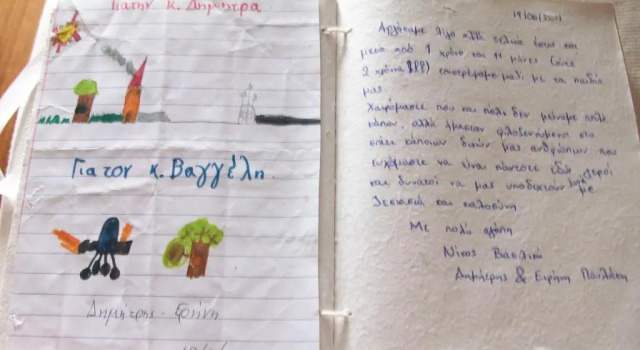 Για την κ. Δημήτρα
Για τον κ. Βαγγέλη.
Δημήτρης - Ειρήνη
Αργήσαμε λίγο αλλά τελικά έστω και
μετά από 1 χρόνο και 11 μήνες (ούτε
2 χρόνια !!!) επιστρέψαμε μαζί με τα παιδιά
μας.
Χαιρόμαστε που και πάλι δεν μείναμε απλά
κάπου, αλλά ήμασταν φιλοξενούμενοι στο
σπίτι κάποιων δικών μας ανθρώπων που
ευχόμαστε να είναι πάντοτε εδώ, γεροί
και δυνατοί να μας υποδεχτούν με
ζεστασιά και καλοσύνη.
Με πολύ αγάπη
Νίκος Βασιλική
Δημήτρης & Ειρήνη